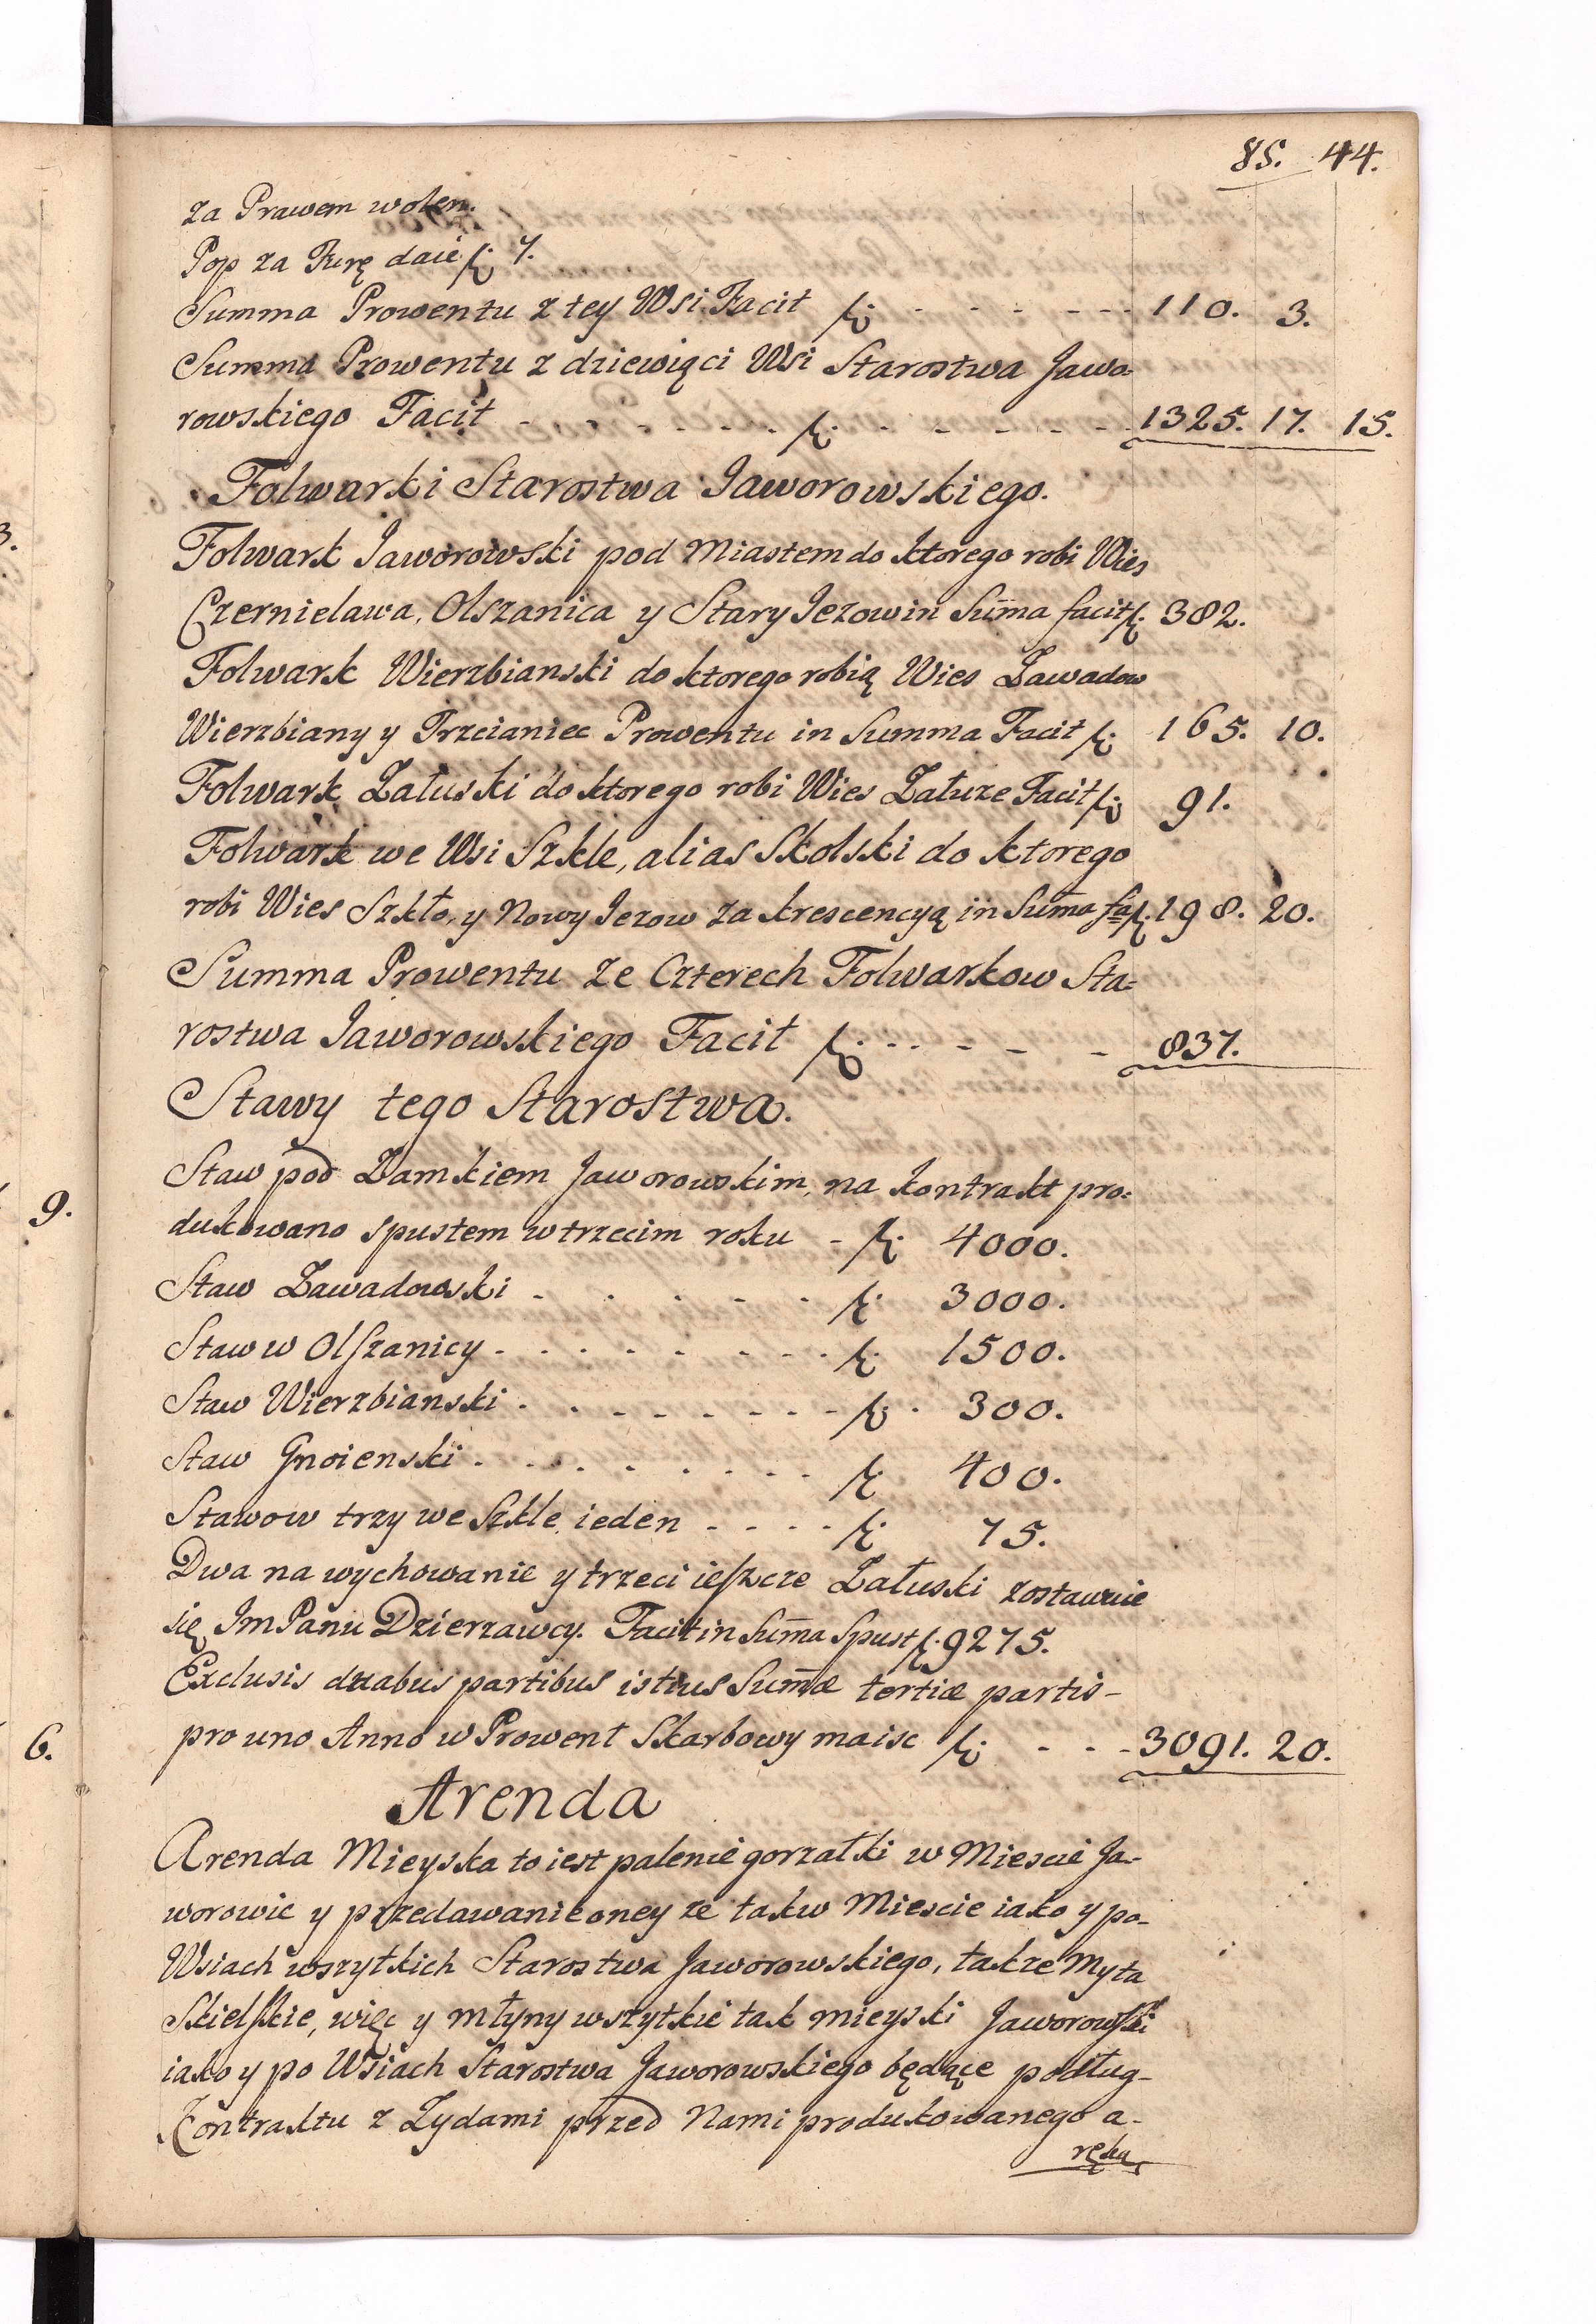 85. 44.
za Prawem wolen.
Pop za Furę daie fl: 7.
Summa Prowentu z tey Wsi Facit fl: - - - - - - 110. 3.
Summa Prowentu z dziewiąci Wsi Starostwa Jawo=
rowskiego Facit - - - - - - fl: - - - - - - 1325. 17. 15.
Folwarki Starostwa Jaworowskiego.
Folwark Jaworowski pod Miastem do ktorego robi Wies
Czernielawa, Olszanica y Stary Jezow in Sum̄a facit fl: 382.
Folwark Wierzbianski do ktorego robią Wies Zawadow
Wierzbiany y Trzcianiec Prowentu in Summa Facit fl: 165. 10.
Folwark Załuski do ktorego robi Wies Załuze Facit fl: 91.
Folwark we Wsi Szkle, alias Skolski do ktorego
robi Wies Szkło, y Nowy Jezow za krescencyą in Sum̄a fa: fl. 198. 20.
Summa Prowentu ze Czterech Folwarkow Sta=
rostwa Jaworowskiego Facit fl: - - - - - 837.
Stawy tego Starostwa.
Staw pod Zamkiem Jaworowskim, na kontrakt pro=
dukowano spustem w trzecim roku - fl: 4000.
Staw Zawadowski - - - - - - fl: 3000.
Staw w Olszanicy - - - - - - - - fl: 1500.
Staw Wierzbianski - - - - - - - - fl: 300.
Staw Gnoienski - - - - - - - - fl: 400.
Stawow trzy we Szkle, ieden - - - - fl: 75.
Dwa na wychowanie y trzeci ieszcze Załuski zostawuie
się Jm Panu Dzierzawcy. Facit in Sum̄a Spust fl. 9275.
Exclusis duabus partibus istius Sum̄æ tertiæ partis -
pro uno Anno w Prowent Skarbowy maisc fl: - - - 3091. 20.
Arenda
Arenda Mieyska to iest palenie gorzałki w Miescie Ja-
worowie y przedawanie oney ze tak w Miescie iako y po-
Wsiach wszytkich Starostwa Jaworowskiego, takze Myta
Skielskie, więc y młyny wszytkie tak mieyski Jaworowski
iako y po Wsiach Starostwa Jaworowskiego będące podług-
Kontraktu z Zydami przed Nami produkowanego a-
ręką